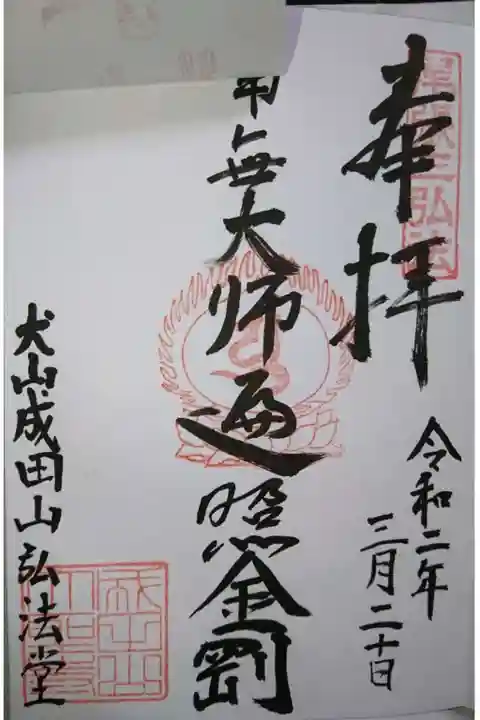 奉拝
令和二年
三月二十日
南無大師遍照金剛
犬山成田山弘法堂